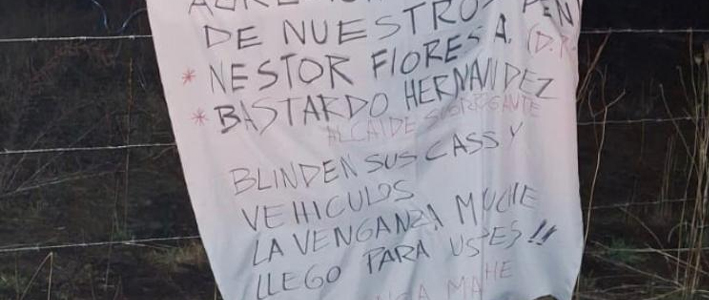 DE NUESTROS PEN
* NESTOR FLORES A. (D.R.
* BASTARDO HERNANDEZ
ALCAIDE SUBROGANTE
BLINDEN SUS CASS Y
VEHICULOS
LA VENGANZA MUCHE
LLEGO PARA USTES!!
MAHE